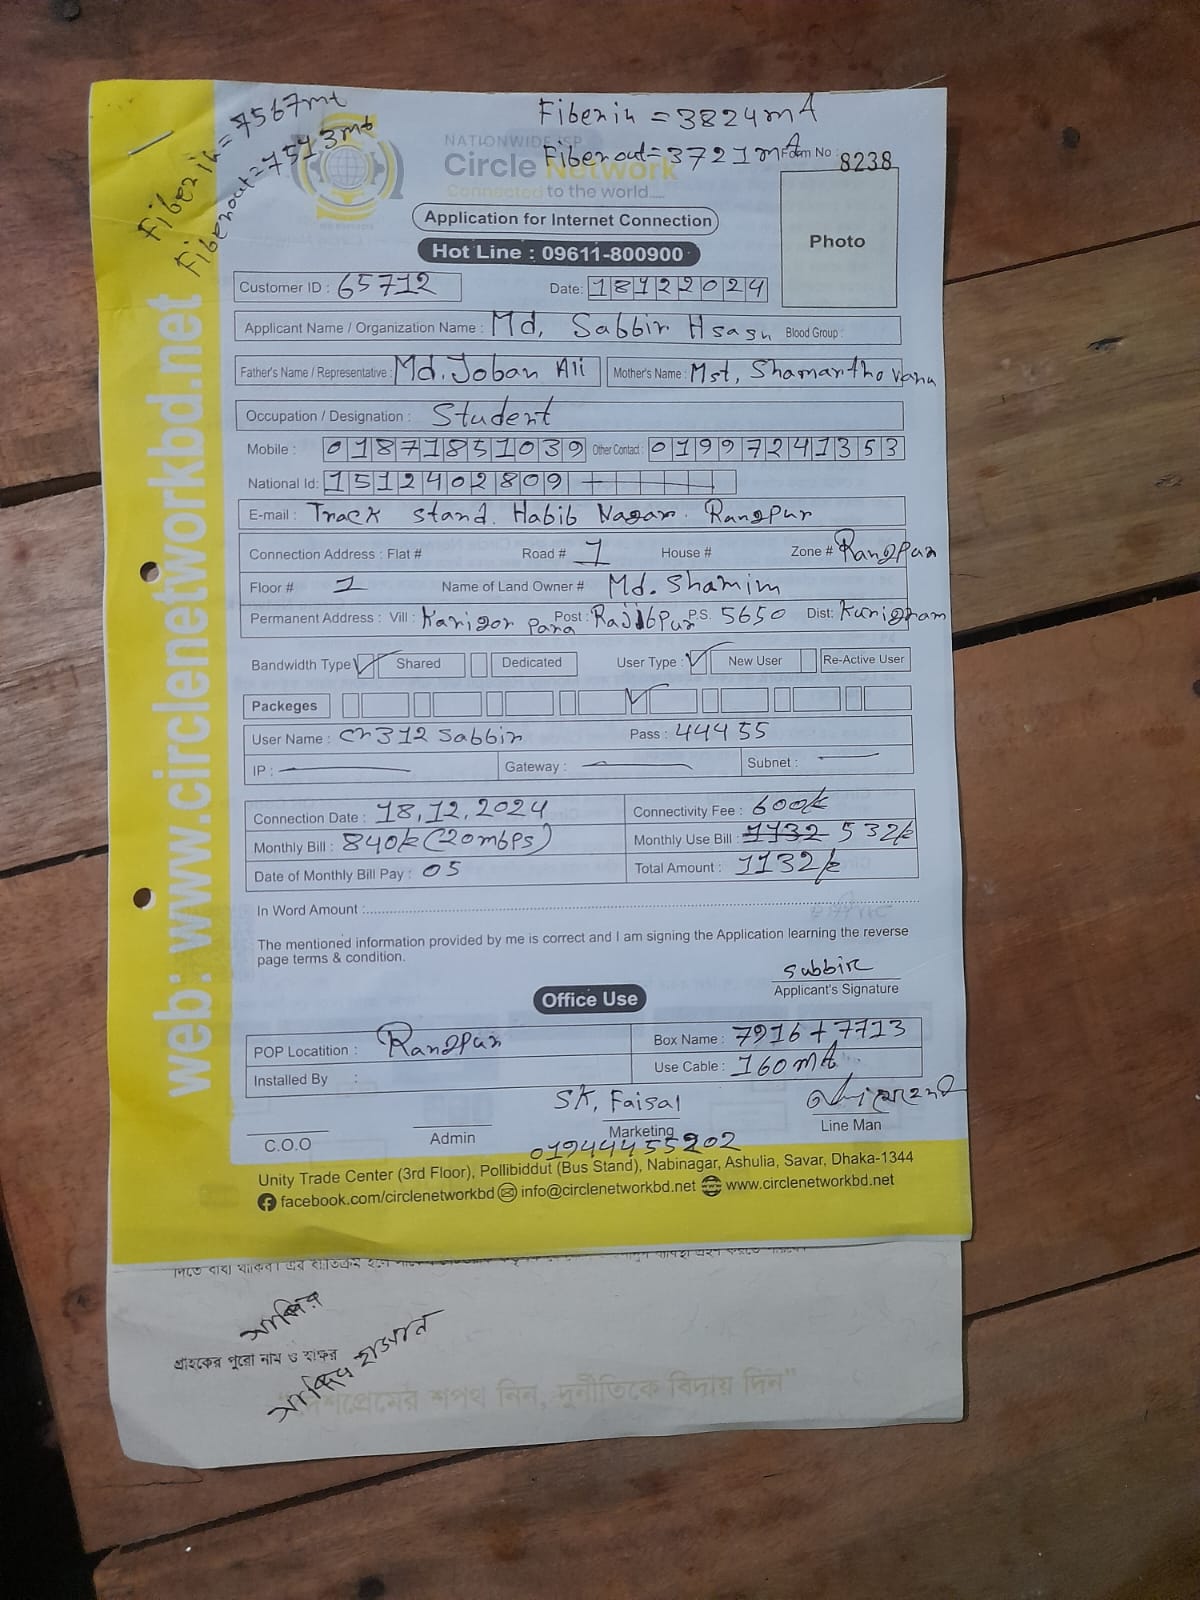 Fiber in = 7567mt
Fiber out = 7513mt
Fiber in = 3824mA
Fiber out = 3721mA
NATIONWIDE ISP
Circle Network
Connected to the world.....
Form No : 8238
Application for Internet Connection
Photo
Hot Line : 09611-800900
Customer ID : 65712 Date: 18122024
Applicant Name / Organization Name : Md. Sabbir Hsasn Blood Group :
Father's Name / Representative : Md. Joban Ali Mother's Name : Mst, Shamartho vanu
Occupation / Designation : Student
Mobile : 01871851039 Other Contact : 01997241353
National Id: 1512402809
E-mail : Track stand. Habib Nagar. Rangpur
Connection Address : Flat # Road # 1 House # Zone # Rangpur
Floor # 1 Name of Land Owner # Md. Shamim
Permanent Address : Vill : Karigor para Post : Rajibpur P.S. 5650 Dist: Kurigram
Bandwidth Type Shared Dedicated User Type : New User Re-Active User
Packeges
User Name : cn312 sabbir Pass : 44455
IP : Gateway : Subnet :
Connection Date : 18.12.2024 Connectivity Fee : 600/=
Monthly Bill : 840/= (20mbps) Monthly Use Bill : 1132 532/=
Date of Monthly Bill Pay : 05 Total Amount : 1132/=
In Word Amount :
The mentioned information provided by me is correct and I am signing the Application learning the reverse
page terms & condition.
sabbir
Applicant's Signature
Office Use
POP Locatition : Rangpur Box Name : 7916 + 7713
Installed By : Use Cable : 160mA
SK, Faisal
C.O.O Admin Marketing Line Man
01944455202
Unity Trade Center (3rd Floor), Pollibiddut (Bus Stand), Nabinagar, Ashulia, Savar, Dhaka-1344
facebook.com/circlenetworkbd info@circlenetworkbd.net www.circlenetworkbd.net
web: www.circlenetworkbd.net
সাব্বির
গ্রাহকের পুরো নাম ও স্বাক্ষর
সাব্বির হাসান
দেশপ্রেমের শপথ নিন, দুর্নীতিকে বিদায় দিন"